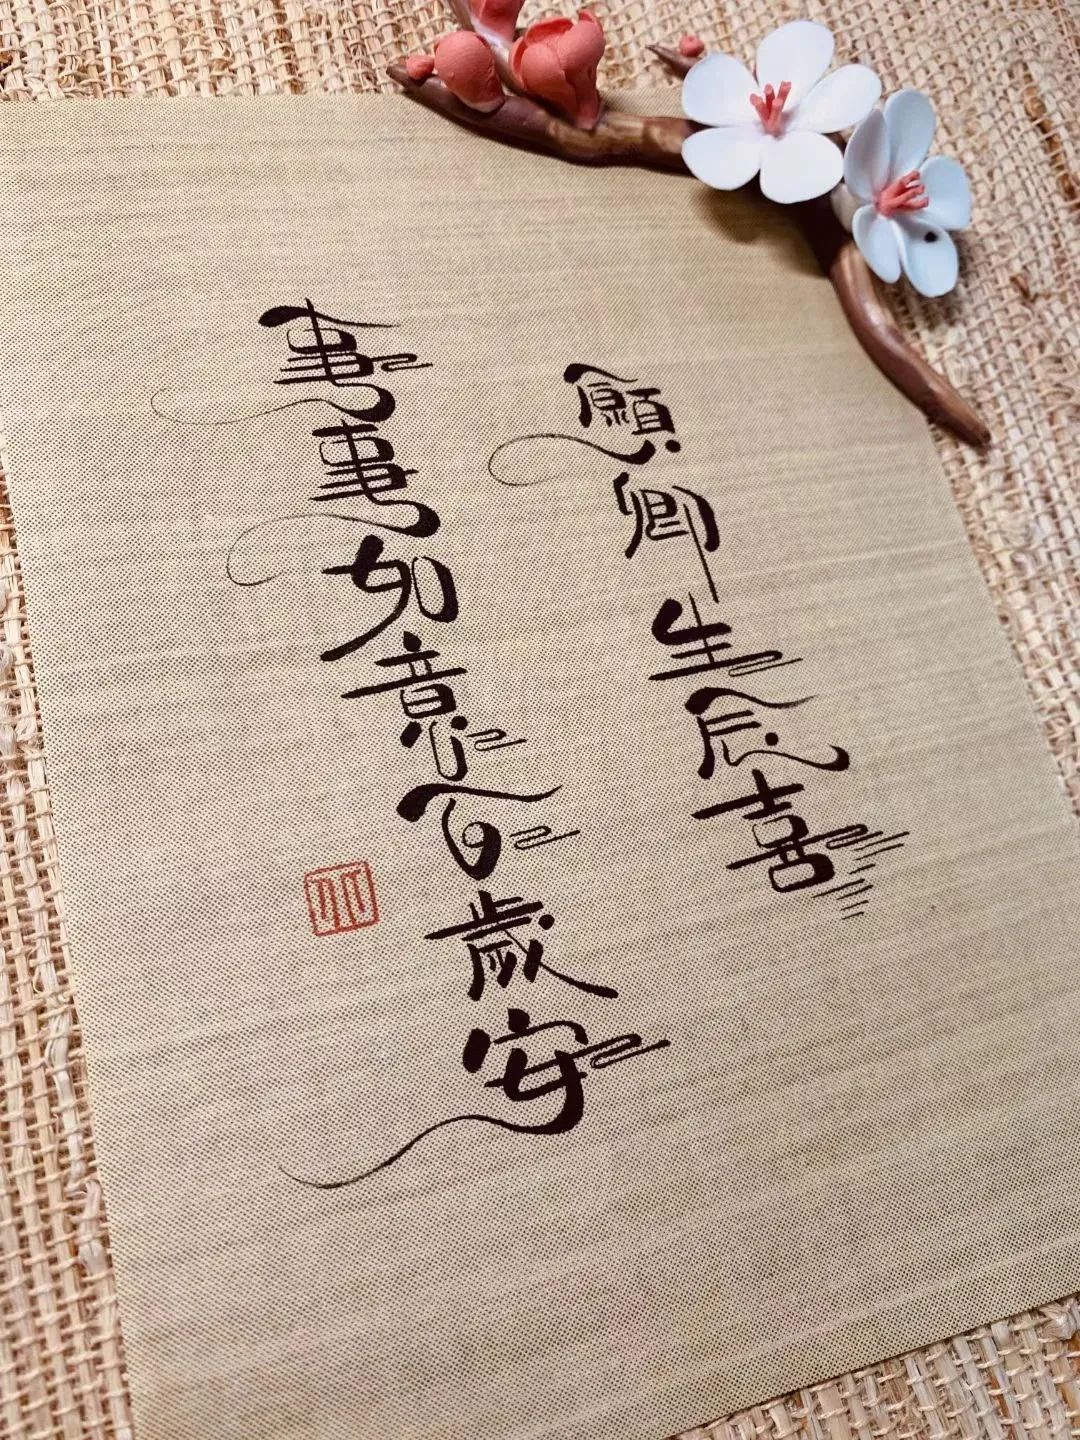 願卿生辰喜
事事如意百歲安